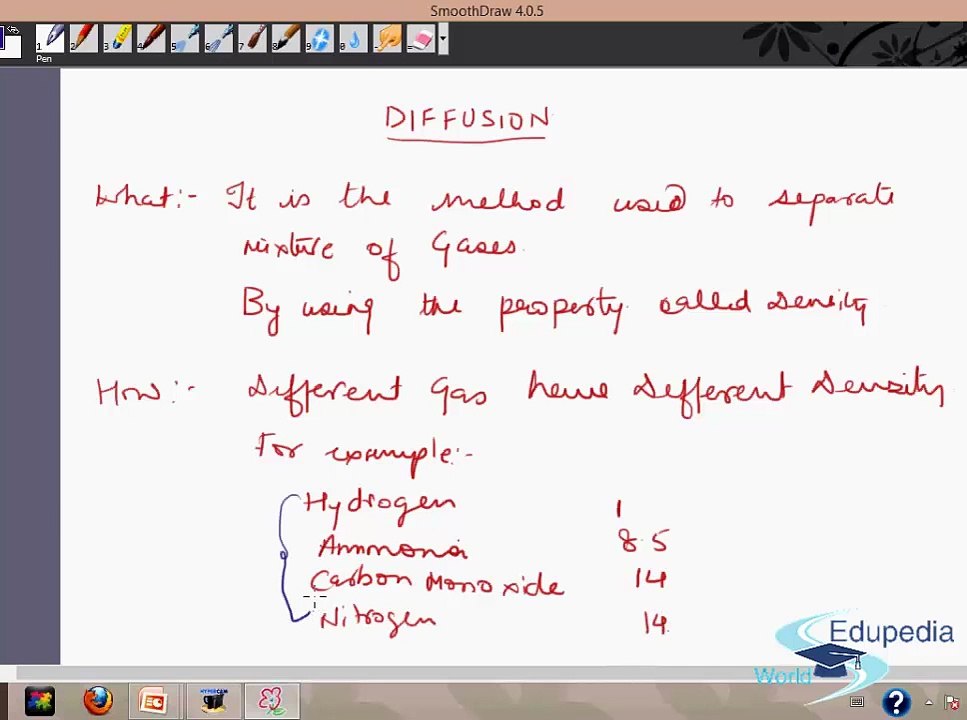 SmoothDraw 4.0.5
1 2 3 4 5 6 7 8 9 0 - =
Pen
DIFFUSION
What:- It is the method used to separate
mixture of Gases.
By using the property called Density
How:- Different Gas have Different Density
For example:-
Hydrogen 1
Ammonia 8.5
Carbon Monoxide 14
Nitrogen 14
Edupedia
World
HYPERCAM
?